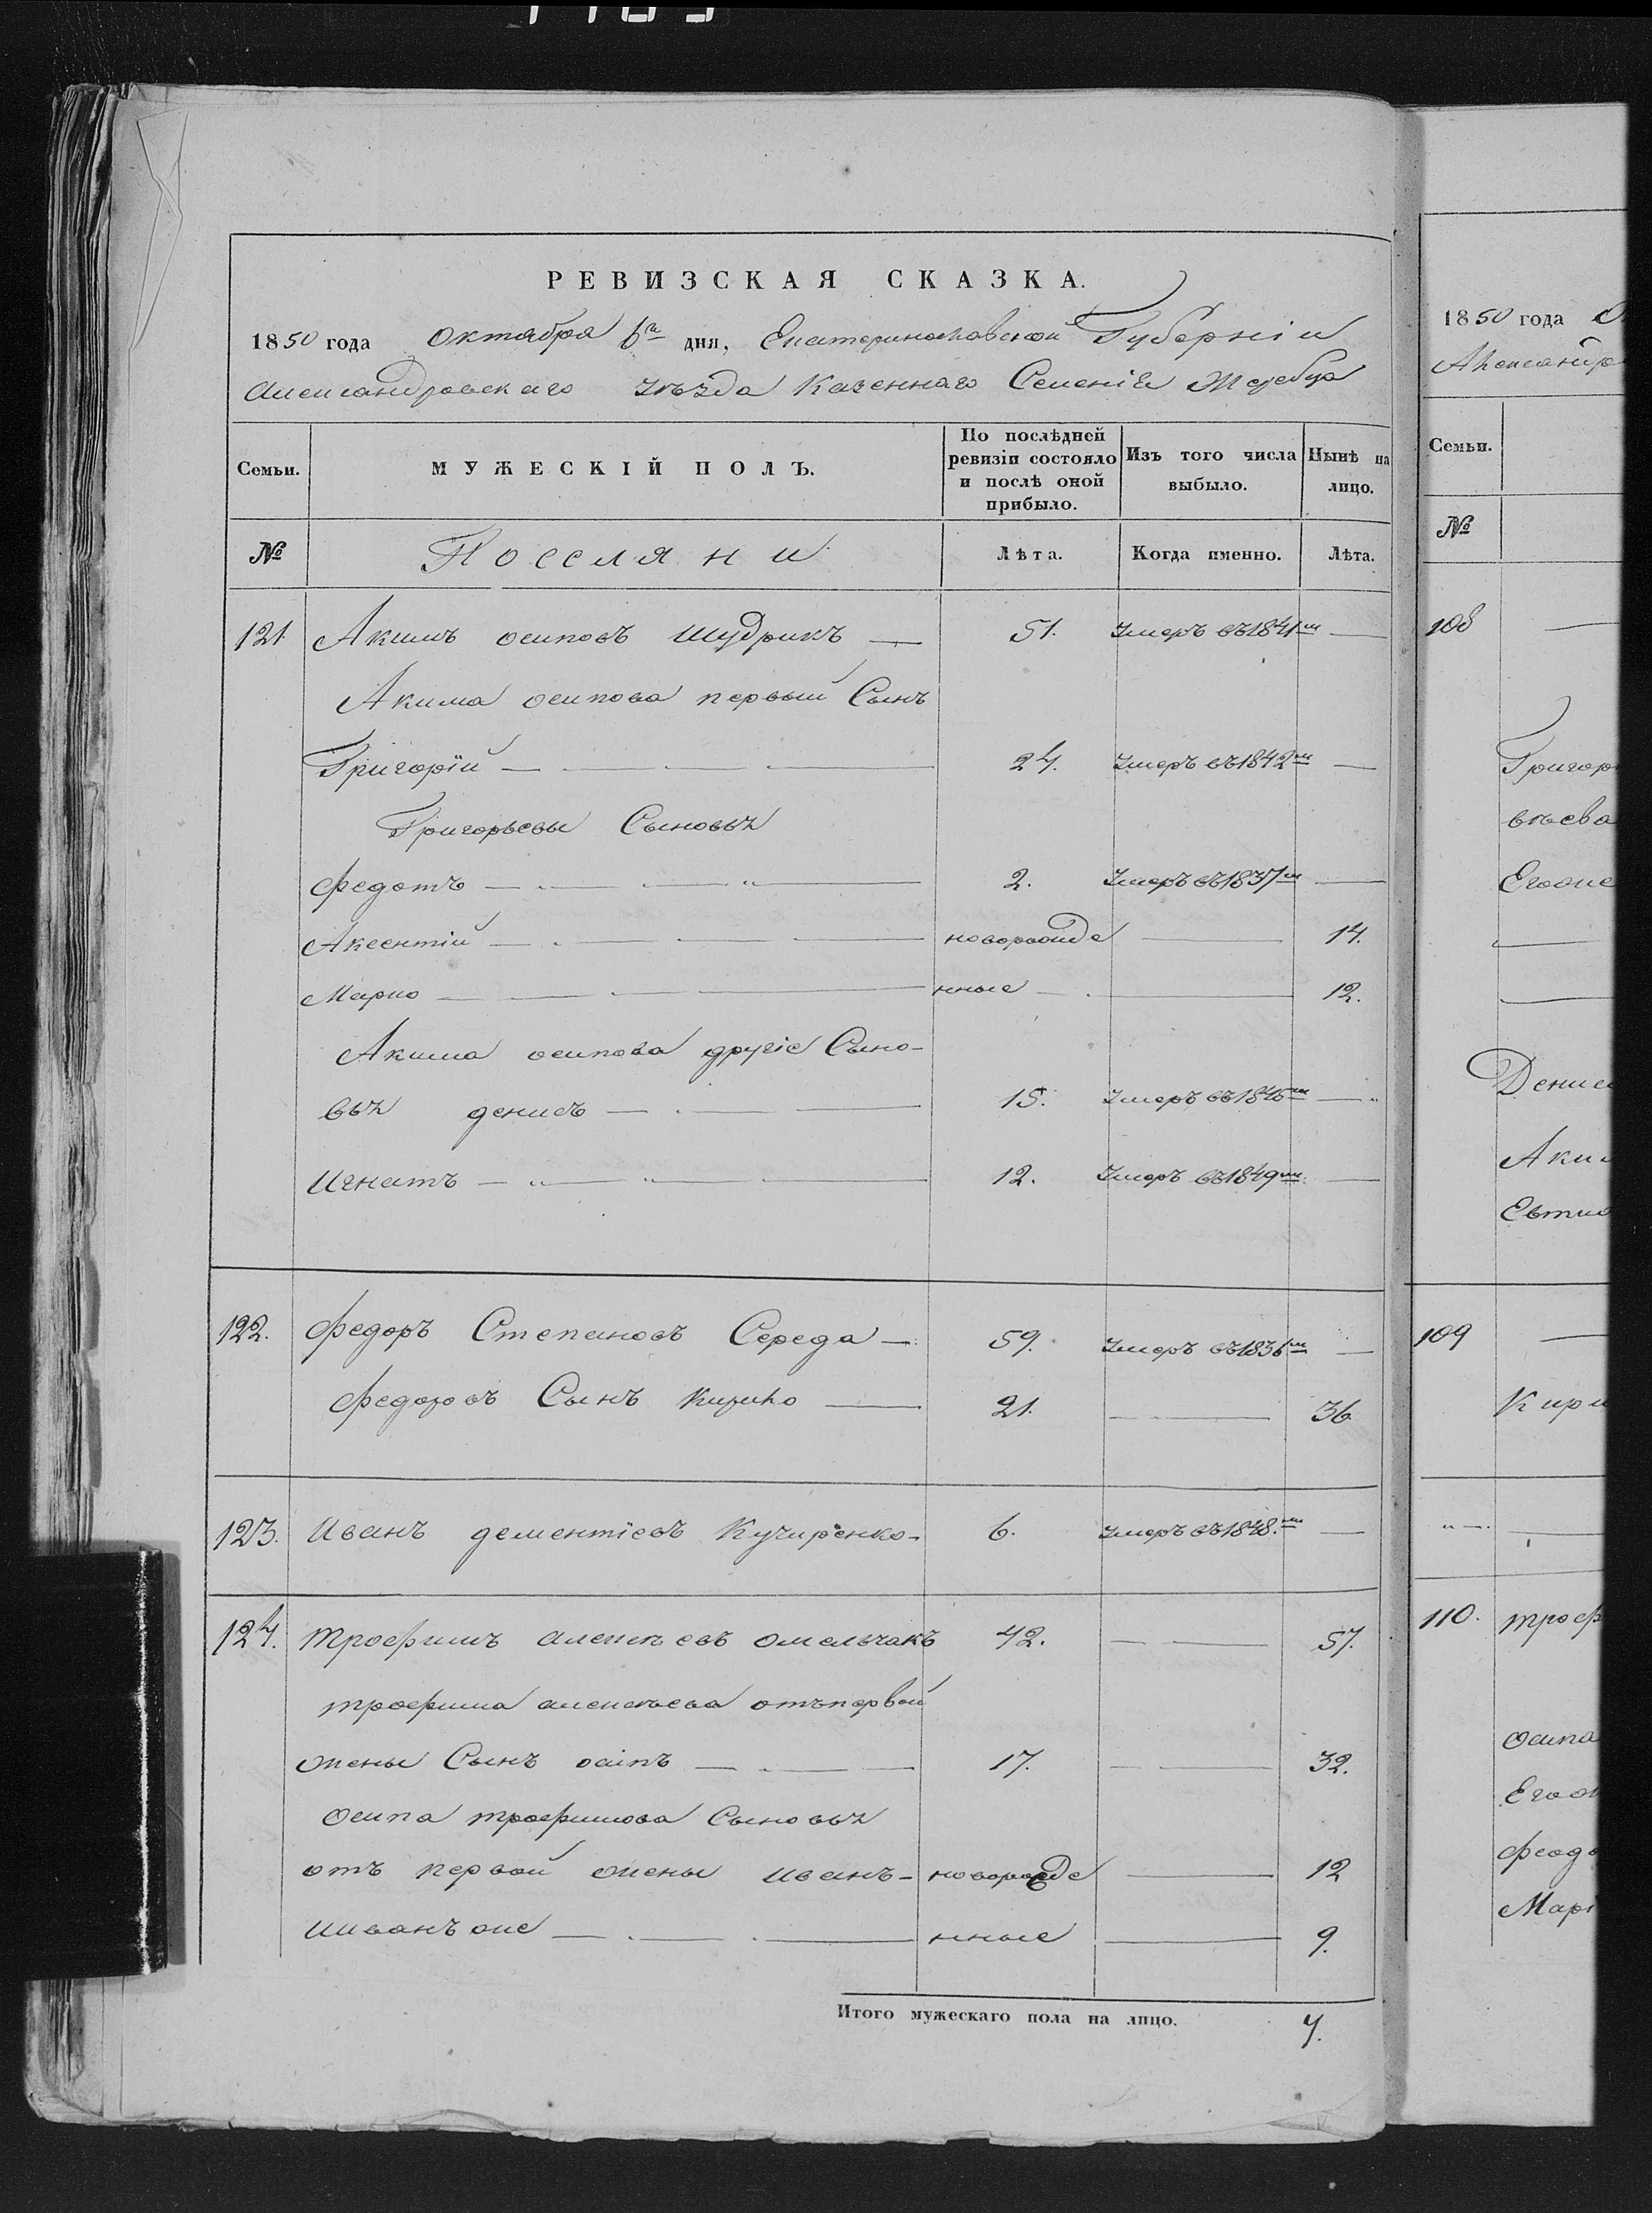 РЕВИЗСКАЯ СКАЗКА.
1850 года Октября 6го дня, Екатеринославской Губерніи
Александровскаго уѣзда Казеннаго Селенія Жеребца
Семьи. МУЖЕСКІЙ ПОЛЪ. По послѣдней ревизіи состояло и послѣ оной прибыло. Изъ того числа выбыло. Нынѣ на лицо.
№ Поселяни Лѣта. Когда именно. Лѣта.
121. Акимъ осиповъ Шудрикъ — 51. Умеръ въ 1841м —
Акима осипова первый Сынъ
Григорій — 24. Умеръ въ 1842м —
Григорьевы Сыновья
Федотъ — 2. Умеръ въ 1837м —
Аксентій — новорожде — 14.
Марко — нные — 12.
Акима осипова другіе Сыно-
вья денисъ — 15. Умеръ въ 1845м —
Игнатъ — 12. Умеръ въ 1849м —
122. Федоръ Степановъ Середа — 59. Умеръ въ 1836м —
Федоровъ Сынъ Кирило — 21. — 36
123. Иванъ дементіевъ Кучиренко - 6. Умеръ въ 1848м —
124. трофимъ алексѣевъ омельчакъ 42. — 57.
трофима алексѣева отъ первой
жены Сынъ осипъ — 17. — 32.
Осипа трофимова Сыновья
отъ первой жены иванъ - новорожде — 12
ииванъ же — нные — 9.
Итого мужескаго пола на лицо. 7.
1850 года О
Александро
Семьи.
№
108 —
Григор
вѣева
Егоже
—
—
Денис
Аким
Евти
109 —
Кири
„ — —
110. троф
Осипа
Егож
феодо
Марі